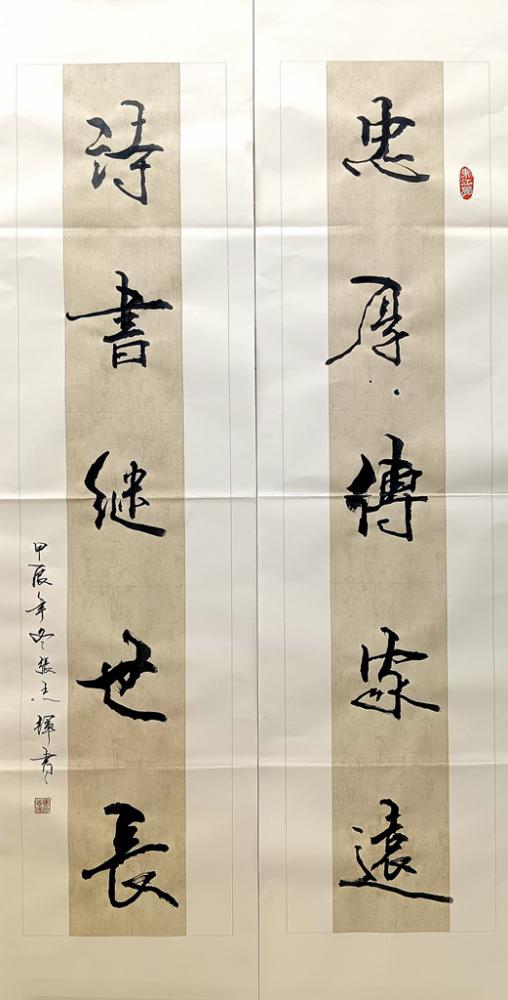 忠厚傳家遠
詩書继世長
甲辰年冬張志輝書